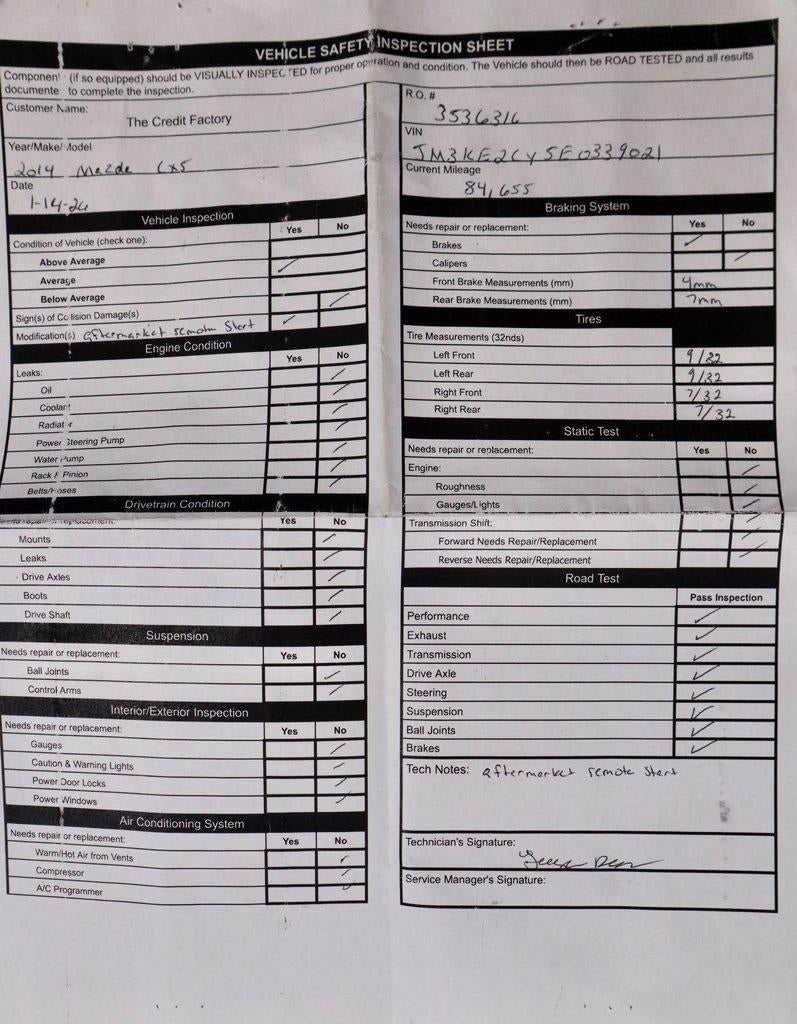 VEHICLE SAFETY INSPECTION SHEET
Component (if so equipped) should be VISUALLY INSPECTED for proper operation and condition. The Vehicle should then be ROAD TESTED and all results
documente to complete the inspection.
Customer Name:
The Credit Factory
Year/Make/Model
2014 Mazda CX5
Date
1-14-26
Vehicle Inspection
Yes No
Condition of Vehicle (check one):
Above Average
Average
Below Average
Sign(s) of Collision Damage(s)
Modification(s) aftermarket remote Start
Engine Condition
Yes No
Leaks:
Oil
Coolant
Radiator
Power Steering Pump
Water Pump
Rack & Pinion
Belts/Hoses
Drivetrain Condition
Needs repair or replacement: Yes No
Mounts
Leaks
Drive Axles
Boots
Drive Shaft
Suspension
Needs repair or replacement: Yes No
Ball Joints
Control Arms
Interior/Exterior Inspection
Needs repair or replacement: Yes No
Gauges
Caution & Warning Lights
Power Door Locks
Power Windows
Air Conditioning System
Needs repair or replacement: Yes No
Warm/Hot Air from Vents
Compressor
A/C Programmer
R.O. #
3536316
VIN
JM3KE2CY5E0339021
Current Mileage
84,655
Braking System
Needs repair or replacement: Yes No
Brakes
Calipers
Front Brake Measurements (mm) 4mm
Rear Brake Measurements (mm) 7mm
Tires
Tire Measurements (32nds)
Left Front 9/32
Left Rear 9/32
Right Front 7/32
Right Rear 7/32
Static Test
Needs repair or replacement: Yes No
Engine:
Roughness
Gauges/Lights
Transmission Shift:
Forward Needs Repair/Replacement
Reverse Needs Repair/Replacement
Road Test
Pass Inspection
Performance
Exhaust
Transmission
Drive Axle
Steering
Suspension
Ball Joints
Brakes
Tech Notes: aftermarket remote Start
Technician's Signature:
Service Manager's Signature: